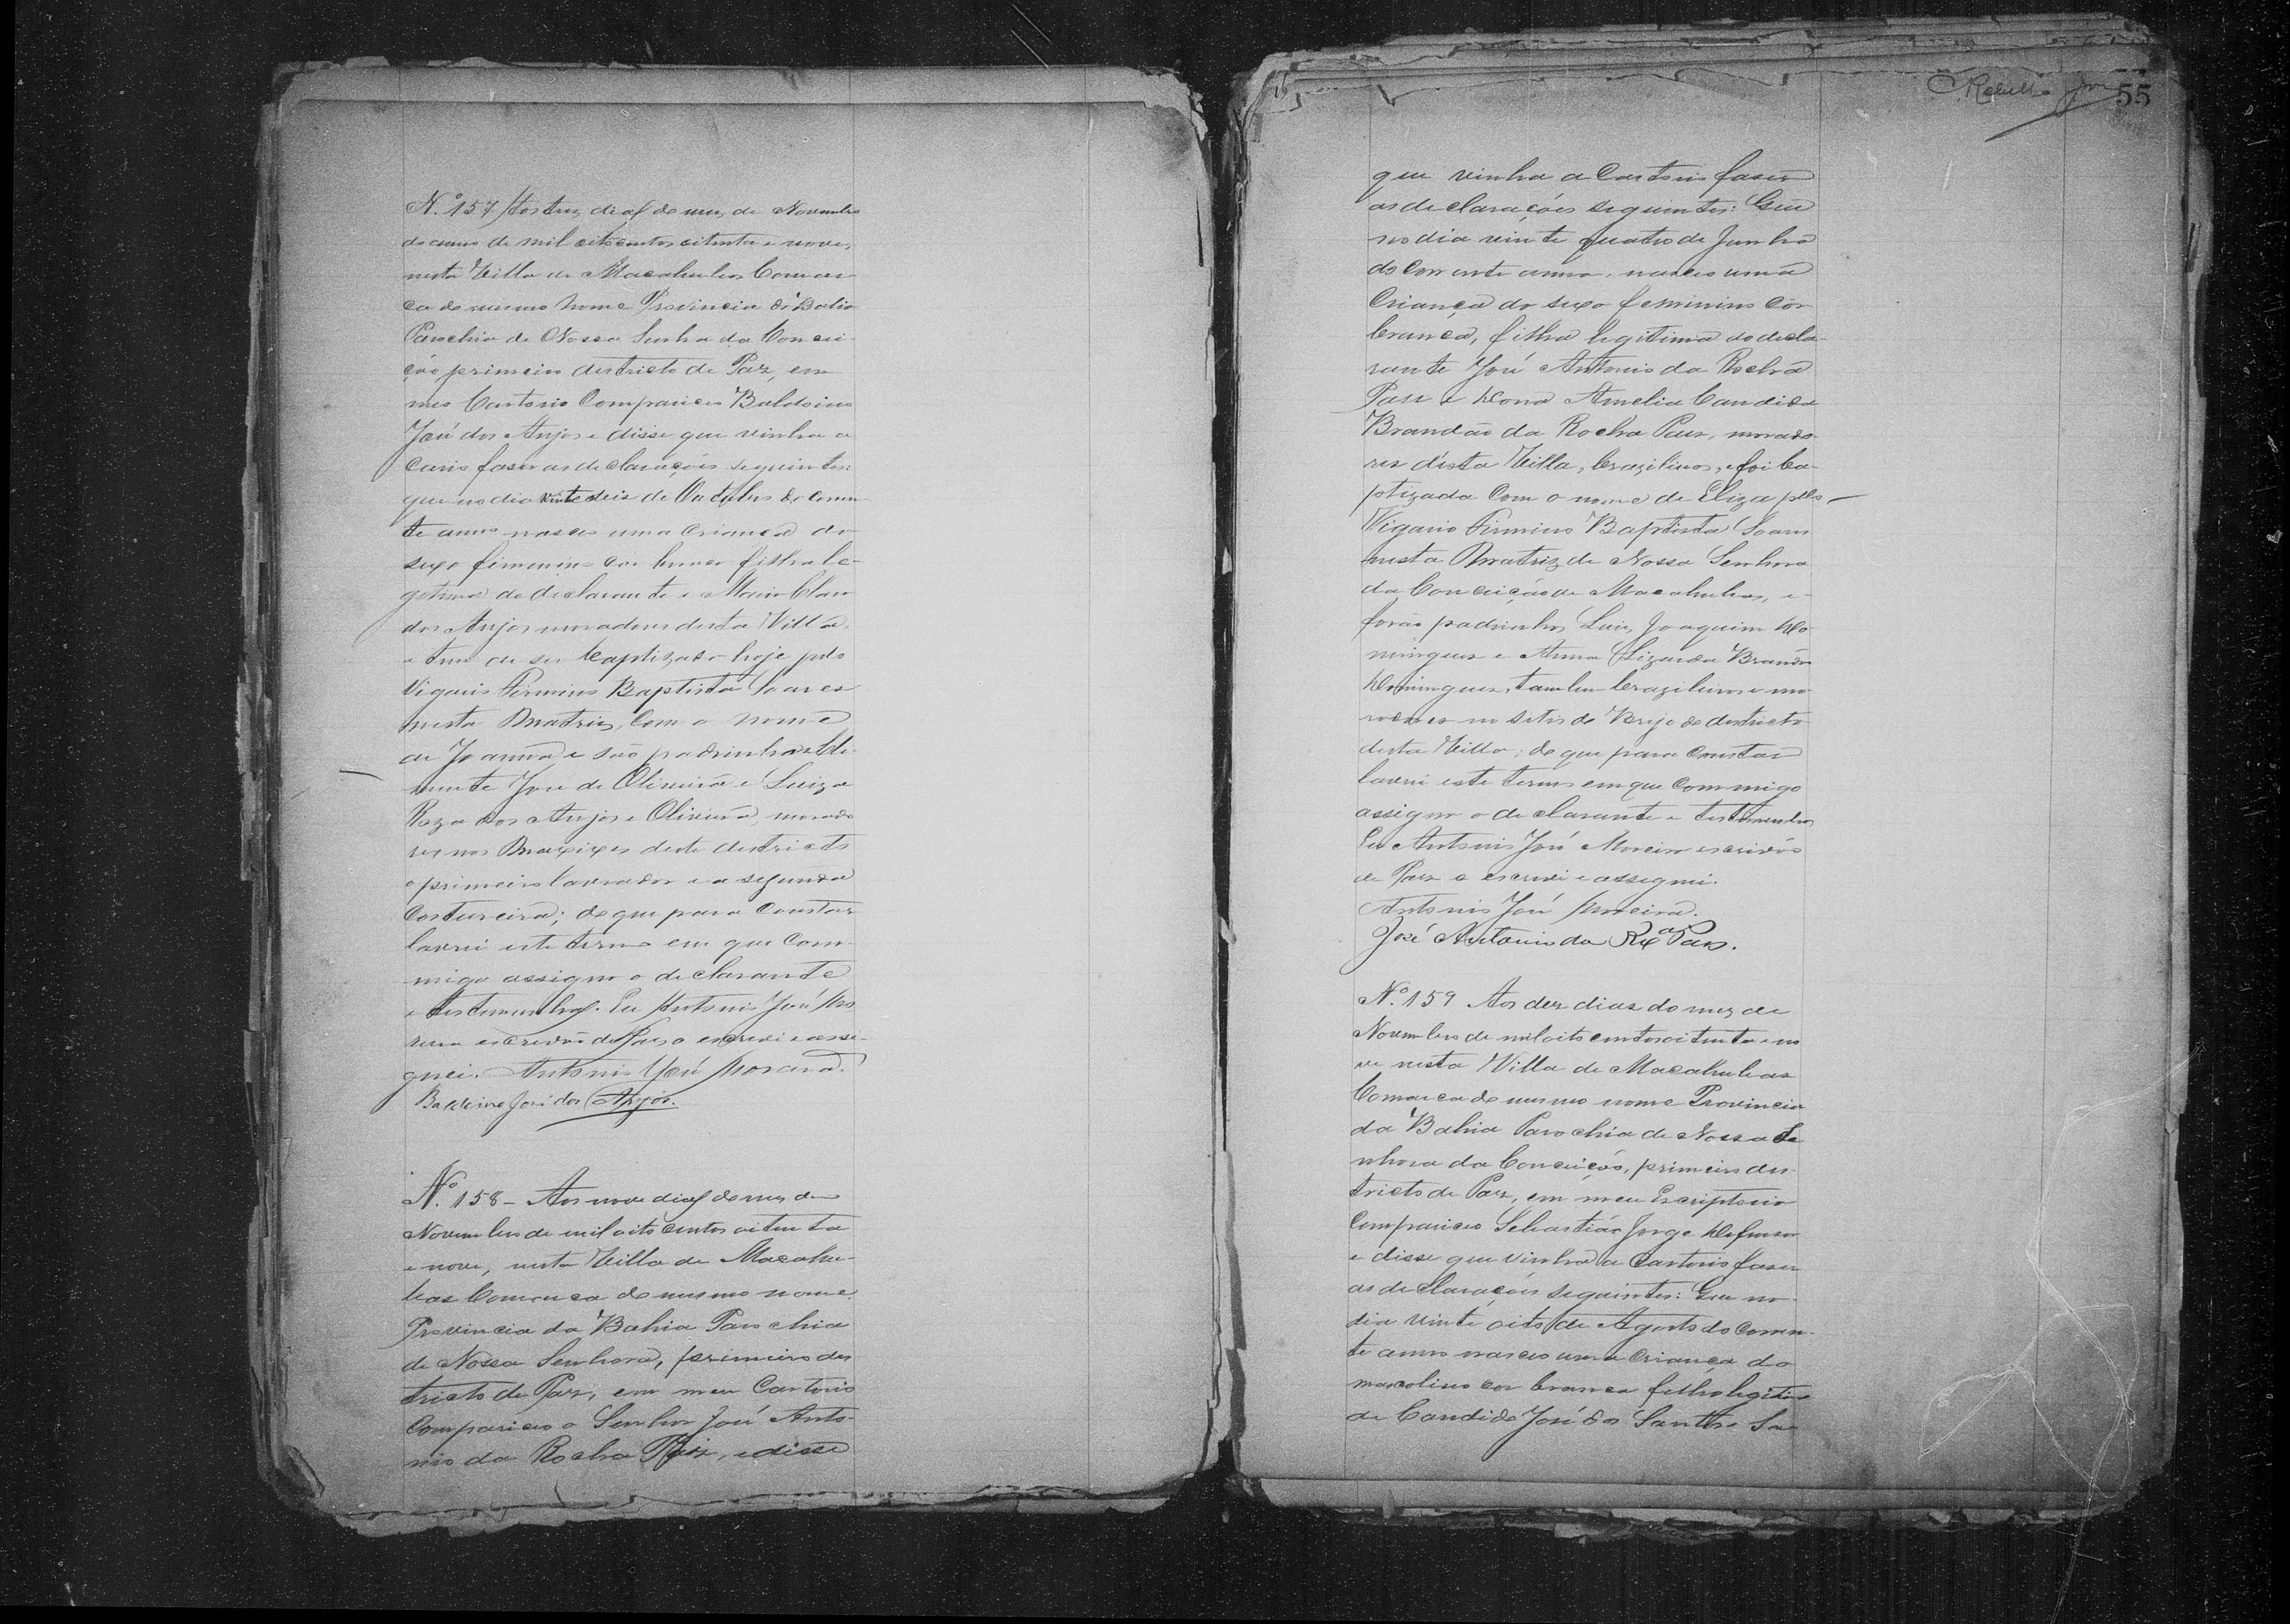 N.º 157 Aos trez dias do mez de Novembro
do anno de mil oitocentos oitenta e nove,
nesta Villa de Macahubas Comar-
ca do mesmo nome Provincia da Bahia
Parochia de Nossa Senhra da Concei-
ção primeiro destricto de Paz, em
meo Cartorio Compareceo Baldoino
José dos Anjos e disse que vinha a
faser as declarações seguintes:
que no dia vinte seis de Outubro do corren-
te anno nasceo uma criança do
sexo feminino cor branca filha le-
getima do declarante e Maria Clara
dos Anjos moradores desta Villa,
e tem de ser baptizada hoje pelo
Vigario Firmino Baptista Soares
nesta Matriz, com o nome
de Joanna e são padrinhos Cle-
mente José de Oliveira e Luiza
Roza dos Anjos e Oliveira, morado
res nos Maxixes deste destricto
o primeiro lavrador e a segunda
Costureira; do que para constar
lavrei este termo em que com-
migo assigno o declarante
e testemunhas. Eu Antonio José Mo
reira escrivão de Paz o escrevi e assi-
gnei. Antonio José Moreira.
Baldoino José dos Anjos.
N.º 158 - Aos nove dias do mez de
Novembro de mil oito centos oitenta
e nove, nesta Villa de Macahu-
bas Comarca do mesmo nome
Provincia da Bahia Parochia
de Nossa Senhora, primeiro des
tricto de Paz, em meu Cartorio
Compareceo o Senhor José Anto-
nio da Rocha Paes, e disse
55
que vinha a Cartorio faser
as declarações seguintes: Que
no dia vinte quatro de Junho
do corrente anno, nasceo uma
Criança do sexo feminino côr
branca, filha legitima do decla-
rante José Antonio da Rocha
Paes e Dona Amelia Candida
Brandão da Rocha Paes, morado-
res d'esta Villa, brazileiros, e foi ba-
ptizada com o nome de Eliza pelo
Vigario Firmino Baptista Soares
nesta Matriz de Nossa Senhora
da Conceição de Macahubas, e
forão padrinhos Luiz Joaquim Do
mingues e Anna Lizarda Brandão
Domingues, tambem brazileiros e mo-
radores no sitio do Brejo do destricto
desta Villa; do que para constar
lavrei este termo em que commigo
assigno o declarante e testemunhas
Eu Antonio José Moreira escrivão
de Paz o escrevi e assignei.
Antonio José Moreira.
José Antonio da Rxª Paes.
N.º 159 Aos dez dias do mez de
Novembro de mil oito centos oitenta e no
ve nesta Villa de Macahubas
Comarca do mesmo nome Provincia
da Bahia Parochia de Nossa Se
nhora da Conceição, primeiro des-
tricto de Paz, em meu Escriptorio
Compareceo Sebastião Jorge Defensor
e disse que vinha a Cartorio faser
as declarações seguintes: Que no
dia vinte oito de Agosto do corren-
te anno nasceo uma criança do
mascolino cor branca filho legitimo
de Candido José dos Santos e Sa